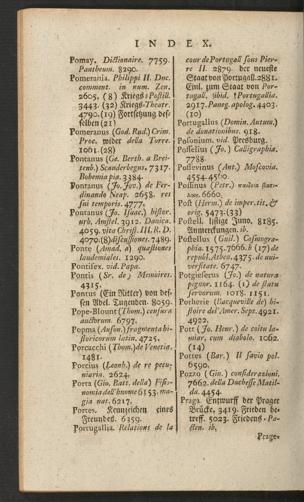 INDEX.
Pomay. Dictionaire. 7759.
Pantheum. 8290.
Pomerania. Philippi II. Duc.
comment. in num. Ten.
2605. (8) Kriegs Postill.
3443. (32) Kriegs-Theatr.
4790. (19) Fortsetzung des-
selben (21)
Pomeranus (God. Rud.) Crim.
Proc. wider della Torre.
1061. (28)
Pontanus (Ge. Berth. a Brei-
tenb.) Scanderbegus. 7317.
Bohemia pia. 3384.
Pontanus (Jo. Jov.) de Fer-
dinando Neap. 2658. res
sui temporis. 4777.
Pontanus (Jo. Isaac.) histor.
urb. Amstel. 3912. Danica.
4059. vita Christ. III. R. D.
4070. (8) discussiones. 7489.
Ponte (Amad. a) quæstiones
laudemiales. 1290.
Pontifex. vid. Papa.
Pontis (Sr. de) Memoires.
4315.
Pontus (Ein Ritter) von des-
sen Adel. Tugenden. 8059.
Pope-Blount (Thom.) censura
auctorum. 6797.
Popma (Auson.) fragmenta hi-
storicorum latin. 4725.
Porcacchi (Thom.) de Venetia.
1481.
Porcius (Leonh.) de re pecu-
niaria. 2624.
Porta (Gio. Batt. della) Fisio-
nomia dell'huomo 6153. ma-
gia nat. 6217.
Portes. Kennzeichen eines
Freundes. 6359.
Portugallia. Relations de la
cour de Portugall sous Pier-
re II. 2879. der neueste
Staat von Portugall. 2881.
Einl. zum Staat von Por-
tugall. ibid. † Portugallia.
2917. Paneg. apolog. 4403.
(10)
Portugallus (Domin. Antun.)
de donationibus. 918.
Posonium. vid. Presburg.
Posselius (Jo.) Calligraphia.
7788.
Possevinus (Ant.) Moscovia.
4554. 4560.
Possinus (Petr.)
6660.
Post (Herm.) de imper. tit. &
orig. 5473. (33)
Postell. listige Juno. 8185.
Anmerckungen. ib.
Postellus (Guil.) Cosmogra-
phia. 1575. 7666. b (17) de
republ. Athen. 4375. de uni-
versitate. 6747.
Potgiesserus (Jo.) de natura
pignor. 1164. (1) de statu
servorum. 1018. 1151.
Potherie (Bacqueville de) hi-
stoire del'Amer. Sept. 4921.
4922.
Pott (Jo. Henr.) de coitu la-
miar. cum diabolo. 1062.
(14)
Pottes (Bar.) II savio pol.
6590.
Pozzo (Gin.) considerazioni.
7662. della Duchesse Matil-
da. 4454.
Praga. Entwurff der Prager
Brücke. 3419. Frieden be-
treff. 5023. Friedens-Pa-
sten. ib.
Prage-